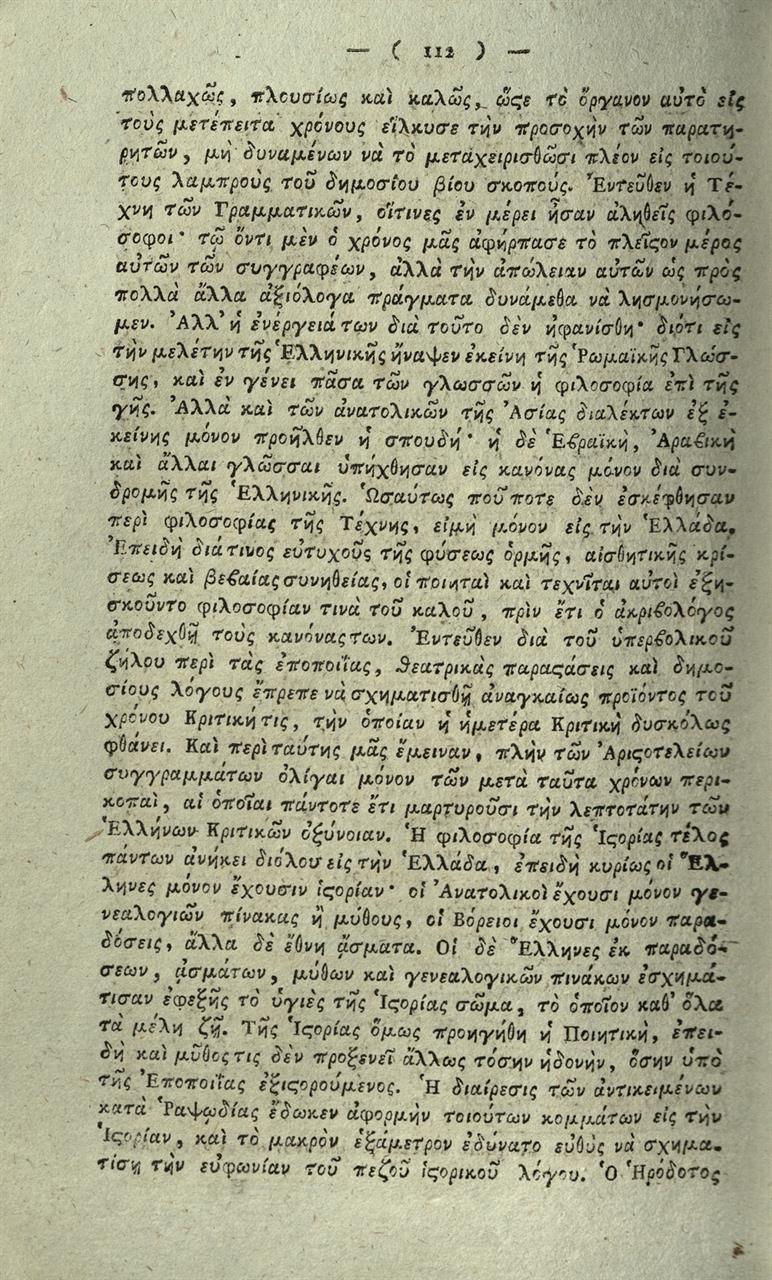 — ( 112 ) —
πολλαχῶς, πλουσίως καὶ καλῶς, ὥϛε τὸ ὄργανον αὐτὸ εἰς
τοὺς μετέπειτα χρόνους εἵλκυσε τὴν προσοχὴν τῶν παρατη-
ρητῶν, μὴ δυναμένων νὰ τὸ μεταχειρισθῶσι πλέον εἰς τοιού-
τους λαμπροὺς τοῦ δημοσίου βίου σκοπούς. Ἐντεῦθεν ἡ Τέ-
χνη τῶν Γραμματικῶν, οἵτινες ἐν μέρει ἦσαν ἀληθεῖς φιλό-
σοφοι· τῷ ὄντι μὲν ὁ χρόνος μᾶς ἀφήρπασε τὸ πλεῖϛον μέρος
αὐτῶν τῶν συγγραφέων, ἀλλὰ τὴν ἀπώλειαν αὐτῶν ὡς πρὸς
πολλὰ ἄλλα ἀξιόλογα πράγματα δυνάμεθα νὰ λησμονήσω-
μεν. Ἀλλ' ἡ ἐνέργειά των διὰ τοῦτο δὲν ἠφανίσθη· διότι εἰς
τὴν μελέτην τῆς Ἑλληνικῆς ἤναψεν ἐκείνη τῆς Ῥωμαϊκῆς Γλώσ-
σης, καὶ ἐν γένει πᾶσα τῶν γλωσσῶν ἡ φιλοσοφία ἐπὶ τῆς
γῆς. Ἀλλὰ καὶ τῶν ἀνατολικῶν τῆς Ἀσίας διαλέκτων ἐξ ἐ-
κείνης μόνον προῆλθεν ἡ σπουδή· ἡ δὲ Ἑβραϊκὴ, Ἀραβικὴ
καὶ ἄλλαι γλῶσσαι ὑπήχθησαν εἰς κανόνας μόνον διὰ συν-
δρομῆς τῆς Ἑλληνικῆς. Ὡσαύτως ποῦποτε δὲν ἐσκέφθησαν
περὶ φιλοσοφίας τῆς Τέχνης, εἰμὴ μόνον εἰς τὴν Ἑλλάδα.
Ἐπειδὴ διά τινος εὐτυχοῦς τῆς φύσεως ὁρμῆς, αἰσθητικῆς κρί-
σεως καὶ βεβαίας συνηθείας, οἱ ποιηταὶ καὶ τεχνῖται αὐτοὶ ἐξη-
σκοῦντο φιλοσοφίαν τινὰ τοῦ καλοῦ, πρὶν ἔτι ὁ ἀκριβολόγος
ἀποδεχθῇ τοὺς κανόνας των. Ἐντεῦθεν διὰ τοῦ ὑπερβολικοῦ
ζήλου περὶ τὰς ἐποποιΐας, θεατρικὰς παραϛάσεις καὶ δημο-
σίους λόγους ἔπρεπε νὰ σχηματισθῇ ἀναγκαίως προϊόντος τοῦ
χρόνου Κριτική τις, τὴν ὁποίαν ἡ ἡμετέρα Κριτικὴ δυσκόλως
φθάνει. Καὶ περὶ ταύτης μᾶς ἔμειναν, πλὴν τῶν Ἀριϛοτελείων
συγγραμμάτων ὀλίγαι μόνον τῶν μετὰ ταῦτα χρόνων περι-
κοπαὶ, αἱ ὁποῖαι πάντοτε ἔτι μαρτυροῦσι τὴν λεπτοτάτην τῶν
Ἑλλήνων Κριτικῶν ὀξύνοιαν. Ἡ φιλοσοφία τῆς Ἱϛορίας τέλος
πάντων ἀνήκει διόλου εἰς τὴν Ἑλλάδα, ἐπειδὴ κυρίως οἱ Ἕλ-
ληνες μόνον ἔχουσιν ἱϛορίαν· οἱ Ἀνατολικοὶ ἔχουσι μόνον γε-
νεαλογιῶν πίνακας ἢ μύθους, οἱ Βόρειοι ἔχουσι μόνον παρα-
δόσεις, ἄλλα δὲ ἔθνη ᾄσματα. Οἱ δὲ Ἕλληνες ἐκ παραδό-
σεων, ᾀσμάτων, μύθων καὶ γενεαλογικῶν πινάκων ἐσχημά-
τισαν ἐφεξῆς τὸ ὑγιὲς τῆς Ἱϛορίας σῶμα, τὸ ὁποῖον καθ' ὅλα
τὰ μέλη ζῇ. Τῆς Ἱϛορίας ὅμως προηγήθη ἡ Ποιητικὴ, ἐπει-
δὴ καὶ μῦθος τις δὲν προξενεῖ ἄλλως τόσην ἡδονὴν, ὅσην ὑπὸ
τῆς Ἐποποιΐας ἐξιϛορούμενος. Ἡ διαίρεσις τῶν ἀντικειμένων
κατὰ Ῥαψῳδίας ἔδωκεν ἀφορμὴν τοιούτων κομμάτων εἰς τὴν
Ἱϛορίαν, καὶ τὸ μακρὸν ἑξάμετρον ἐδύνατο εὐθὺς νὰ σχημα-
τίσῃ τὴν εὐφωνίαν τοῦ πεζοῦ ἱϛορικοῦ λόγου. Ὁ Ἡρόδοτος